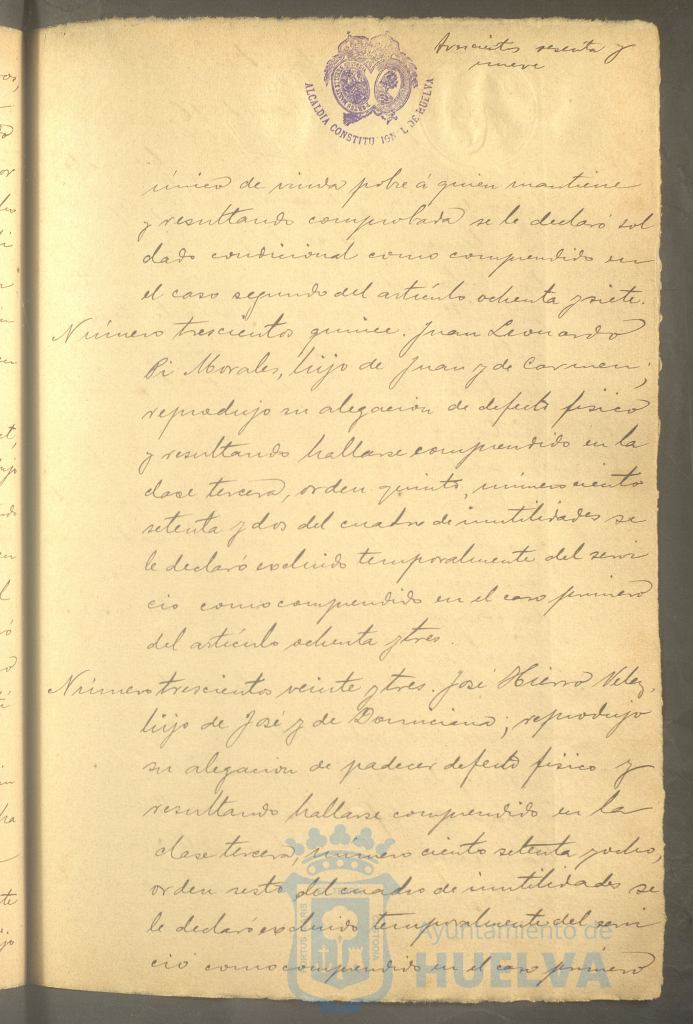 trescientos sesenta y
nueve
ALCALDIA CONSTITUCIONAL DE HUELVA
único de viuda pobre á quien mantiene
y resultando comprobada se le declaró sol
dado condicional como comprendido en
el caso segundo del artículo ochenta y siete.
Número trescientos quince. Juan Leonardo
Pi Morales, hijo de Juan y de Carmen;
reprodujo su alegacion de defecto fisico
y resultando hallarse comprendido en la
clase tercera, orden quinto, número ciento
setenta y dos del cuadro de inutilidades se
le declaró excluido temporalmente del servi
cio como comprendido en el caso primero
del artículo ochenta y tres.
Número trescientos veinte y tres. José Hierro Velez,
hijo de José y de Domiciana; reprodujo
su alegacion de padecer defecto fisico y
resultando hallarse comprendido en la
clase tercera, número ciento setenta y ocho,
orden sesto del cuadro de inutilidades se
le declaró excluido temporalmente del servi
cio como comprendido en el caso primero
Ayuntamiento de
HUELVA